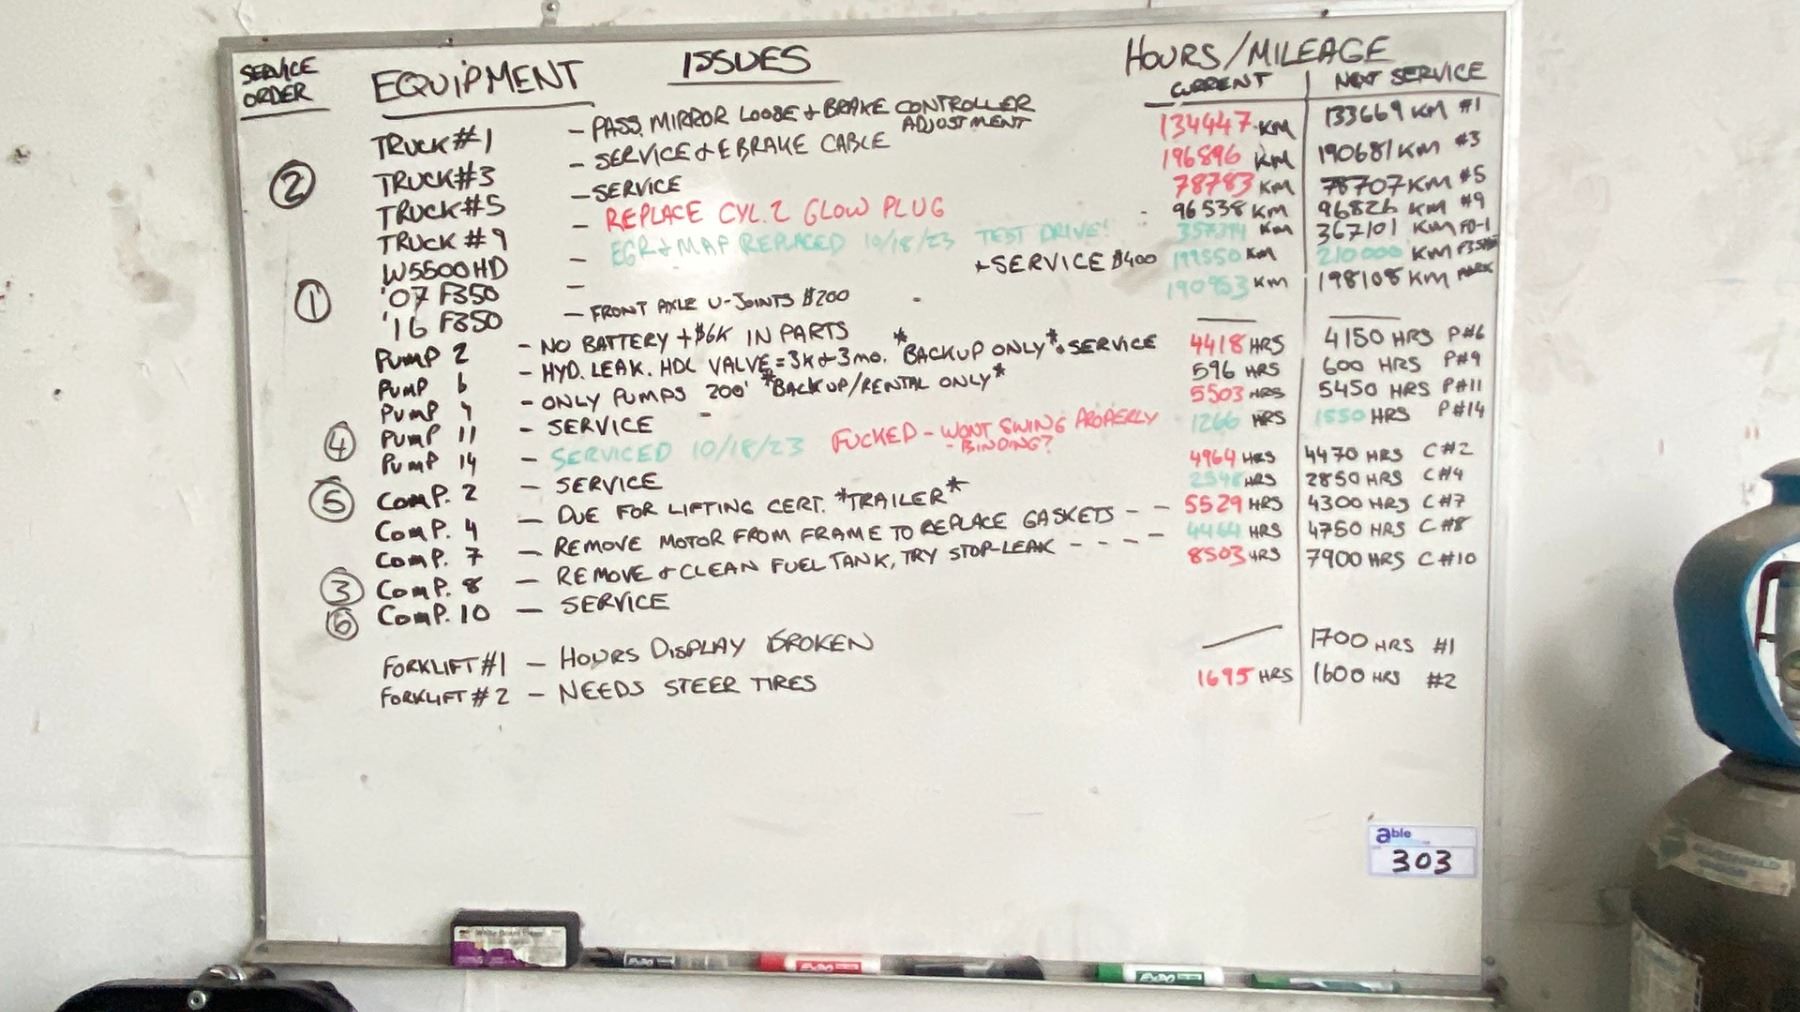 SERVICE ORDER EQUIPMENT ISSUES HOURS/MILEAGE
CURRENT NEXT SERVICE
TRUCK #1 - PASS. MIRROR LOOSE & BRAKE CONTROLLER ADJUSTMENT 134447 KM 133669 KM #1
② TRUCK #3 - SERVICE & EBRAKE CABLE 196896 KM 190681 KM #3
TRUCK #5 - SERVICE 78783 KM 78707 KM #5
TRUCK #9 - REPLACE CYL. 2 GLOW PLUG 96538 KM 96826 KM #9
W5500HD - EGR & MAP REPLACED 10/18/23 TEST DRIVE! KM 367101 KM FD-1
① '07 F350 - + SERVICE $400 KM 210000 KM
'16 F350 - FRONT AXLE U-JOINTS $200 190953 KM 198108 KM
PUMP 2 - NO BATTERY + $6K IN PARTS
PUMP 6 - HYD. LEAK. HDL VALVE = 3K & 3 MO. *BACKUP ONLY* SERVICE 4418 HRS 4150 HRS P#6
PUMP 9 - ONLY PUMPS 200' *BACKUP/RENTAL ONLY* 596 HRS 600 HRS P#9
④ PUMP 11 - SERVICE 5503 HRS 5450 HRS P#11
PUMP 14 - SERVICED 10/18/23 FUCKED - WONT SWING PROPERLY - BINDING? 1266 HRS 1550 HRS P#14
⑤ COMP. 2 - SERVICE 4964 HRS 4470 HRS C#2
COMP. 4 - DUE FOR LIFTING CERT. *TRAILER* HRS 2850 HRS C#4
COMP. 7 - REMOVE MOTOR FROM FRAME TO REPLACE GASKETS - - 5529 HRS 4300 HRS C#7
③ COMP. 8 - REMOVE & CLEAN FUEL TANK, TRY STOP-LEAK - - - - 4464 HRS 4750 HRS C#8
⑥ COMP. 10 - SERVICE 8503 HRS 7900 HRS C#10
FORKLIFT #1 - HOURS DISPLAY BROKEN 1700 HRS #1
FORKLIFT #2 - NEEDS STEER TIRES 1695 HRS 1600 HRS #2
able
303
EXPO
EXPO
EXPO